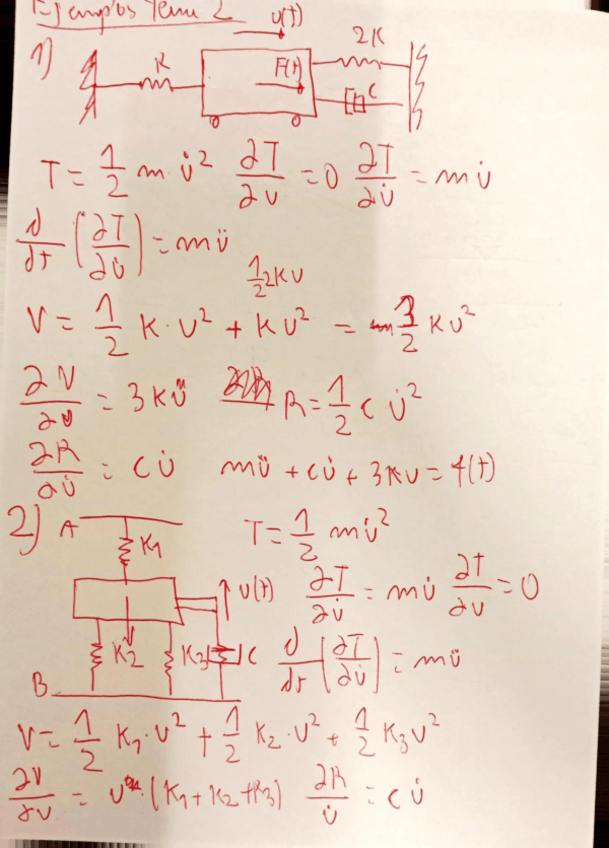 Ejemplos Tema 2
1) K U(t) F(t) 2K C
T = 1/2 m · u̇² ∂T/∂u = 0 ∂T/∂u̇ = m u̇
d/dt (∂T/∂u̇) = m ü
1/2 2KU
V = 1/2 K · U² + K U² = 3/2 K U²
∂V/∂u = 3 K ü R = 1/2 c u̇²
∂R/∂u̇ = c u̇ m ü + c u̇ + 3KU = f(t)
2) A K1 T = 1/2 m u̇²
U(t) ∂T/∂u̇ = m u̇ ∂T/∂u = 0
K2 K3 C d/dt (∂T/∂u̇) = m ü
B
V = 1/2 K1 · U² + 1/2 K2 · U² + 1/2 K3 U²
∂V/∂u = U · (K1 + K2 + K3) ∂R/u̇ = c u̇